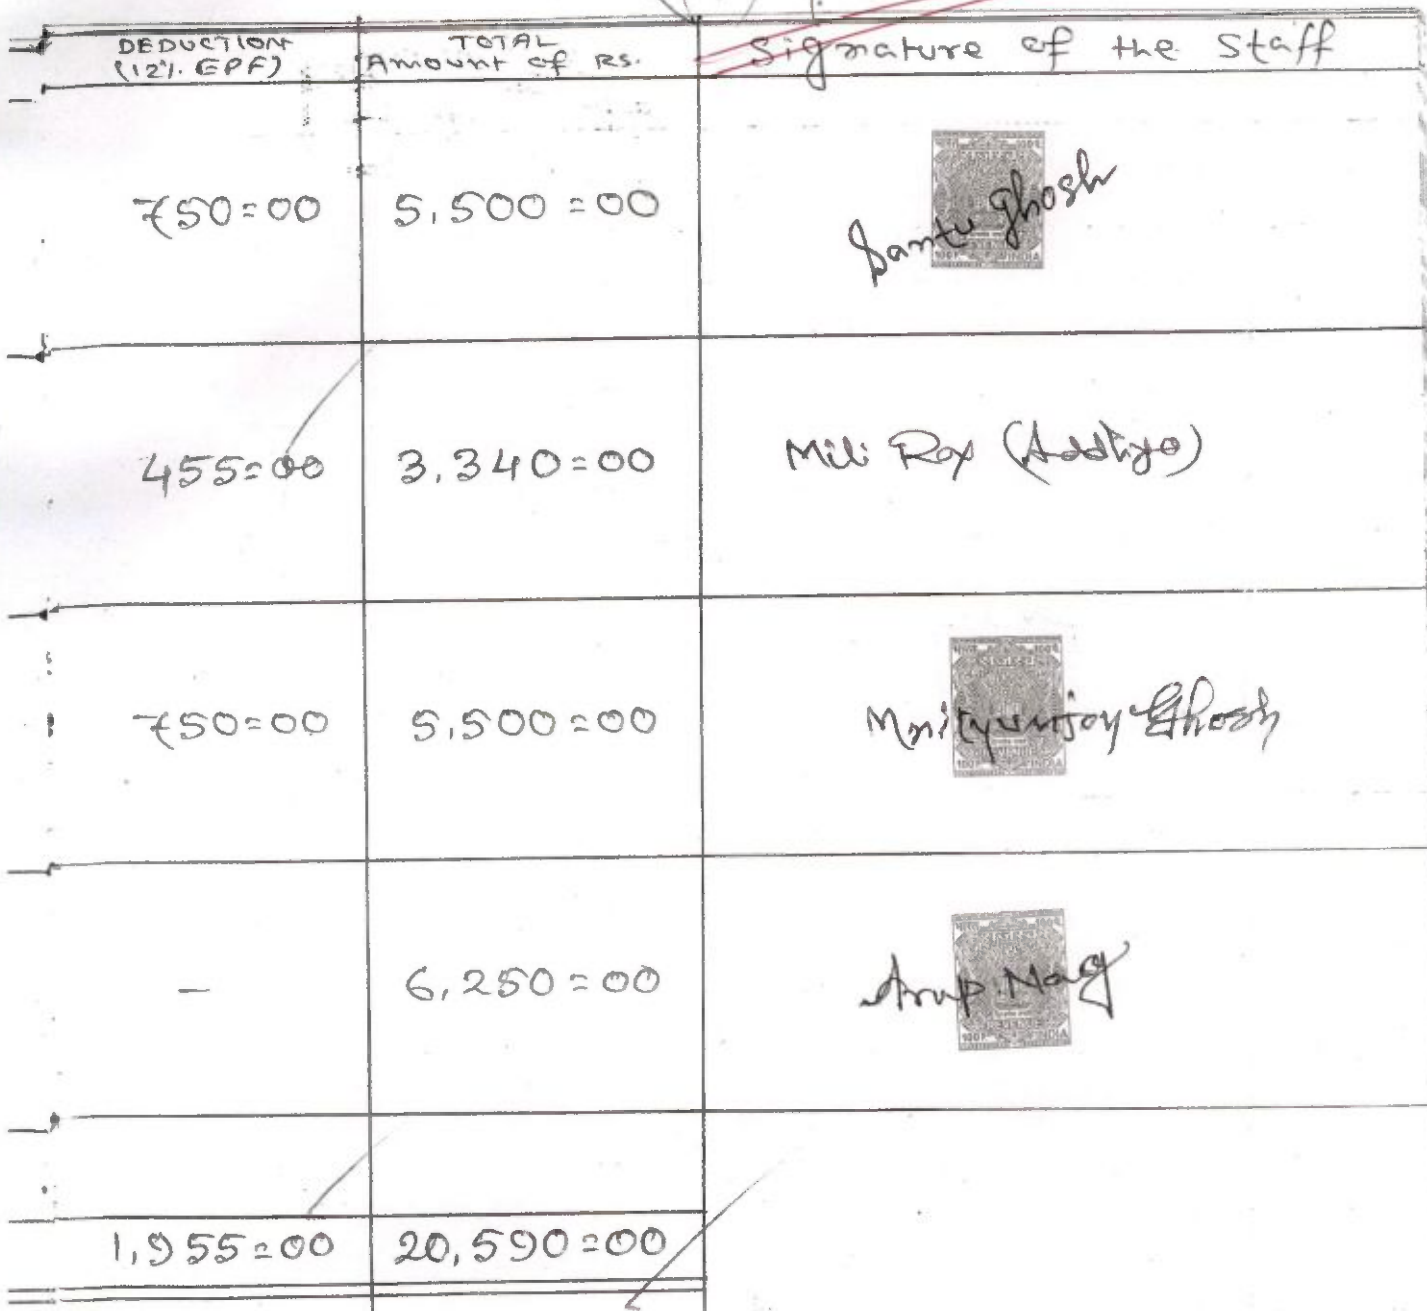 DEDUCTION (12%. EPF) TOTAL Amount of RS. Signature of the Staff
750=00 5,500=00 Santu Ghosh
455=00 3,340=00 Mili Roy (Addhya)
750=00 5,500=00 Mrityunjoy Ghosh
- 6,250=00 Arup Nag
1,955=00 20,590=00